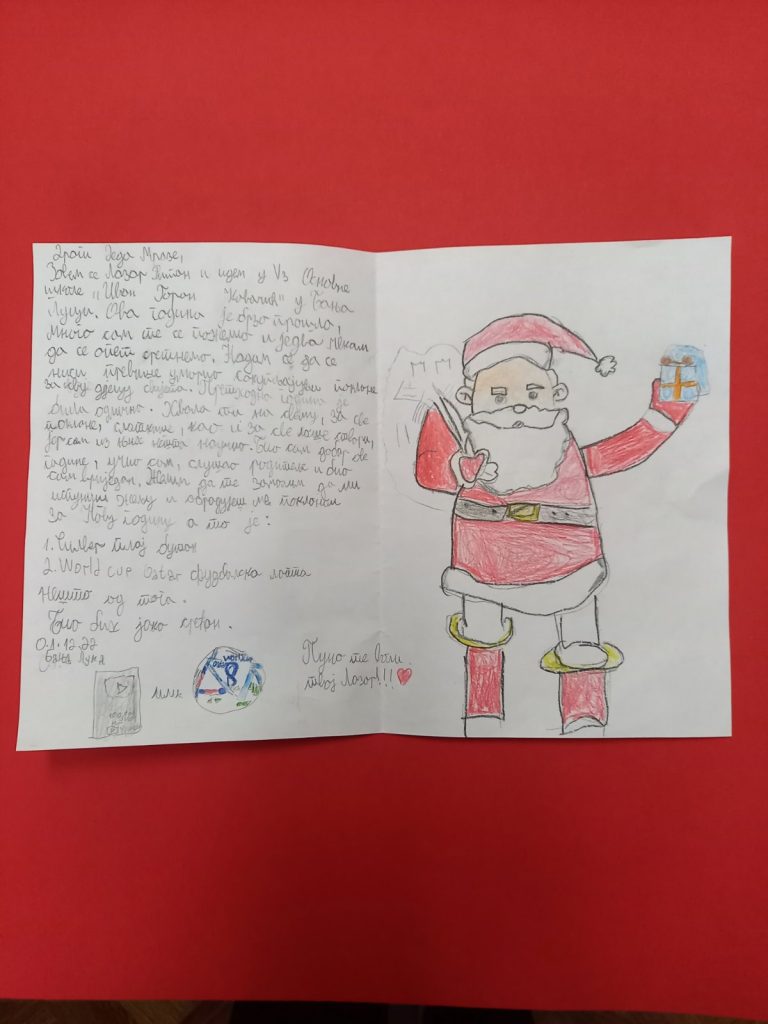 Драги Деда Мразе,
Зовем се Лазар и идем у V₃ Основне
школе „Иван Горан Ковачић" у Бања
Луци. Ова година је брзо прошла,
много сам те се пожелио и једва чекам
да се опет сретнемо. Надам се да се
ниси превише уморио сакупљајући поклоне
за сву дјецу свијета. Претходна година је
била одлично. Хвала ти на свему, за све
поклоне, слаткише, као и за све лоше ствари,
јер сам из њих нешта научио. Био сам добар ове
године, учио сам, слушао родитеље и био
сам вриједан. Желим да те замолим да ми
испуниш жељу и обрадујеш ме поклоном
за Нову годину а то је:
1. Силвер плеј бутон
2. World cup Qatar фудбалска лопта
Нешто од тога.
Био бих јако срећан.
01.12.22
Бања Лука
или
8
Пуно те воли
твој Лазар!!!